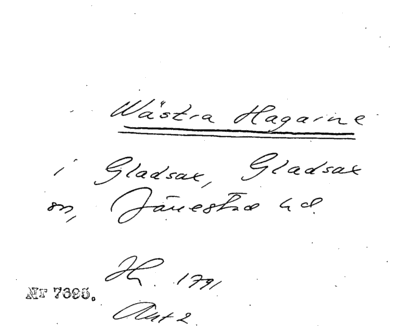 Wästra Hagarne
i Gladsax, Gladsax
sn, Järrestad hd.
H. 1791
Akt 2
Nr 7395.